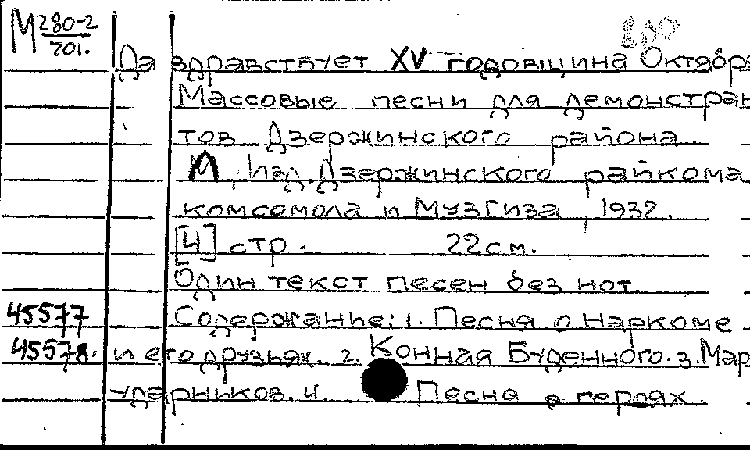 М 280-2
701.
200
Да здравствует XV годовщина Октября
Массовые песни для демонстран
тов Дзержинского района
М, Изд. Дзержинского райкома
комсомола и Музгиза, 1932.
[4] стр. 22 см.
Один текст песен без нот
45577 Содержание: 1. Песня о наркоме
45578. и его друзьях. 2. Конная Буденного. 3. Мар
ударников. 4. Песня о героях